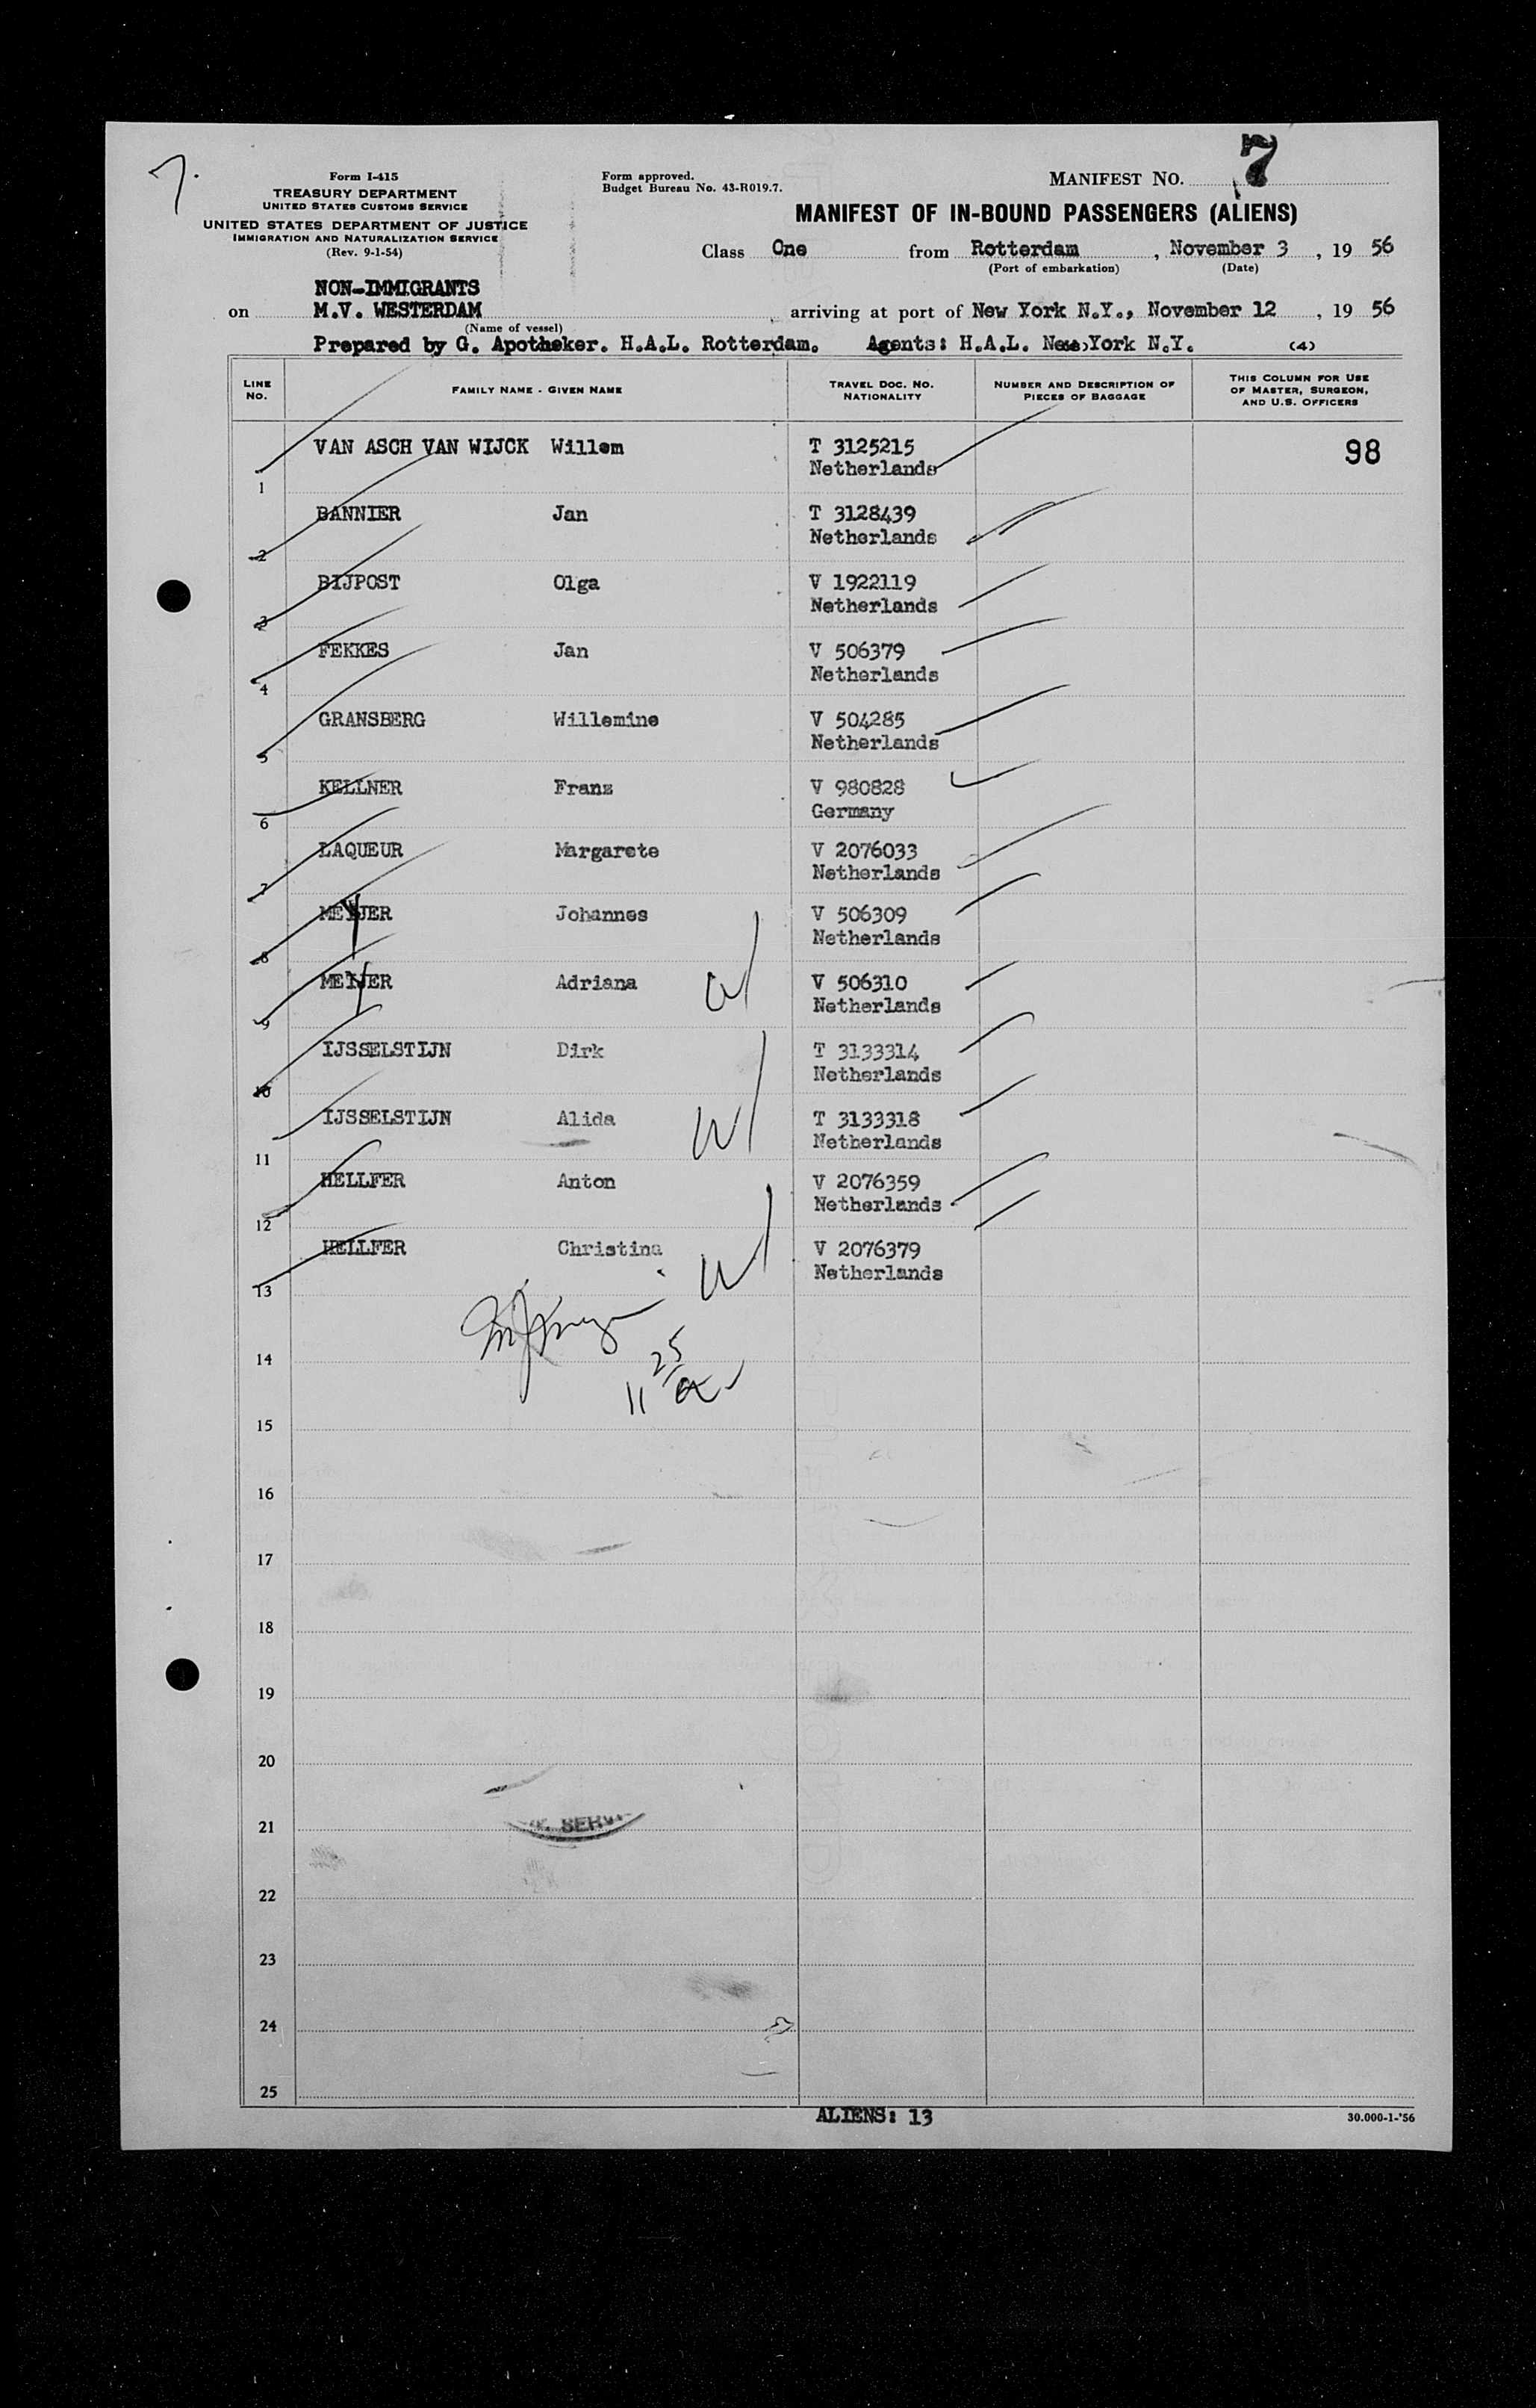 7.
7
Form I-415
TREASURY DEPARTMENT
UNITED STATES CUSTOMS SERVICE
UNITED STATES DEPARTMENT OF JUSTICE
IMMIGRATION AND NATURALIZATION SERVICE
(Rev. 9-1-54)
Form approved.
Budget Bureau No. 43-R019.7.
MANIFEST NO.
MANIFEST OF IN-BOUND PASSENGERS (ALIENS)
Class One from Rotterdam, November 3, 19 56
(Port of embarkation) (Date)
NON-IMMIGRANTS
on M.V. WESTERDAM, arriving at port of New York N.Y., November 12, 19 56
(Name of vessel)
Prepared by G. Apotheker. H.A.L. Rotterdam. Agents: H.A.L. New York N.Y. (4)
LINE NO. FAMILY NAME - GIVEN NAME TRAVEL DOC. NO. NATIONALITY NUMBER AND DESCRIPTION OF PIECES OF BAGGAGE THIS COLUMN FOR USE OF MASTER, SURGEON, AND U.S. OFFICERS
VAN ASCH VAN WIJCK Willem T 3125215 98
1 Netherlands
BANNIER Jan T 3128439
2 Netherlands
BIJPOST Olga V 1922119
3 Netherlands
FEKKES Jan V 506379
4 Netherlands
GRANSBERG Willemine V 504285
5 Netherlands
KELLNER Franz V 980828
6 Germany
LAQUEUR Margarete V 2076033
7 Netherlands
MEYER Johannes V 506309
8 Netherlands
MEYER Adriana V 506310
9 Netherlands
IJSSELSTIJN Dirk T 3133314
10 Netherlands
IJSSELSTIJN Alida T 3133318
11 Netherlands
HELLFER Anton V 2076359
12 Netherlands
HELLFER Christina V 2076379
13 Netherlands
14
11 25
15
16
17
18
19
20
21
SERV
22
23
24
25
ALIENS: 13
30.000-1-'56